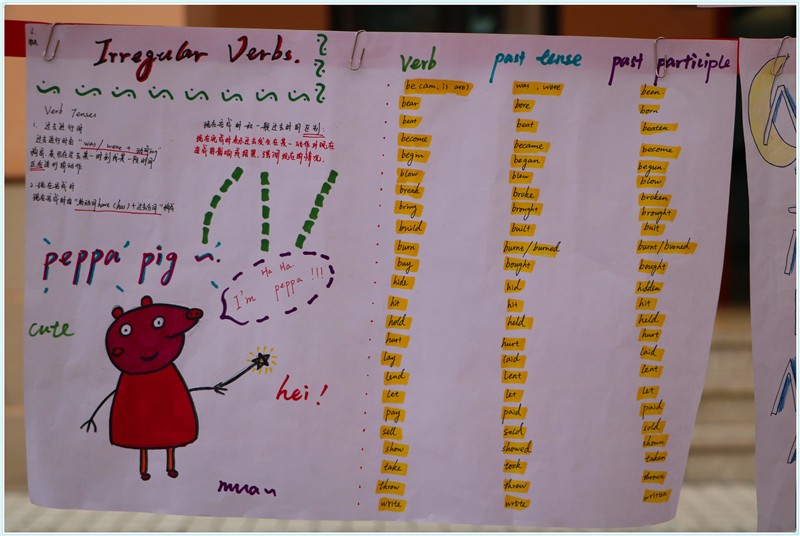 Irregular Verbs.
Verb Tenses
1. 过去进行时
过去进行时由"was/were + 动词ing"
构成，表示在过去某一时刻或某一段时间
正在进行的动作
2. 现在完成时
现在完成时由"助动词have (has) + 过去分词"构成
现在完成时和一般过去时的区别:
peppa pig
Ha Ha
I'm peppa !!!
cute
hei!
verb past tense past participle
be (am, is are) was, were been
bear bore born
beat beat beaten
become became become
begin began begun
blow blew blow
break broke broken
bring brought brought
build built built
burn burnt/burned burnt/burned
buy bought bought
hide hid hidden
hit hit hit
hold held held
hurt hurt hurt
lay laid laid
lend lent lent
let let let
pay paid paid
sell sold sold
show showed shown
take took taken
throw threw thrown
write wrote written